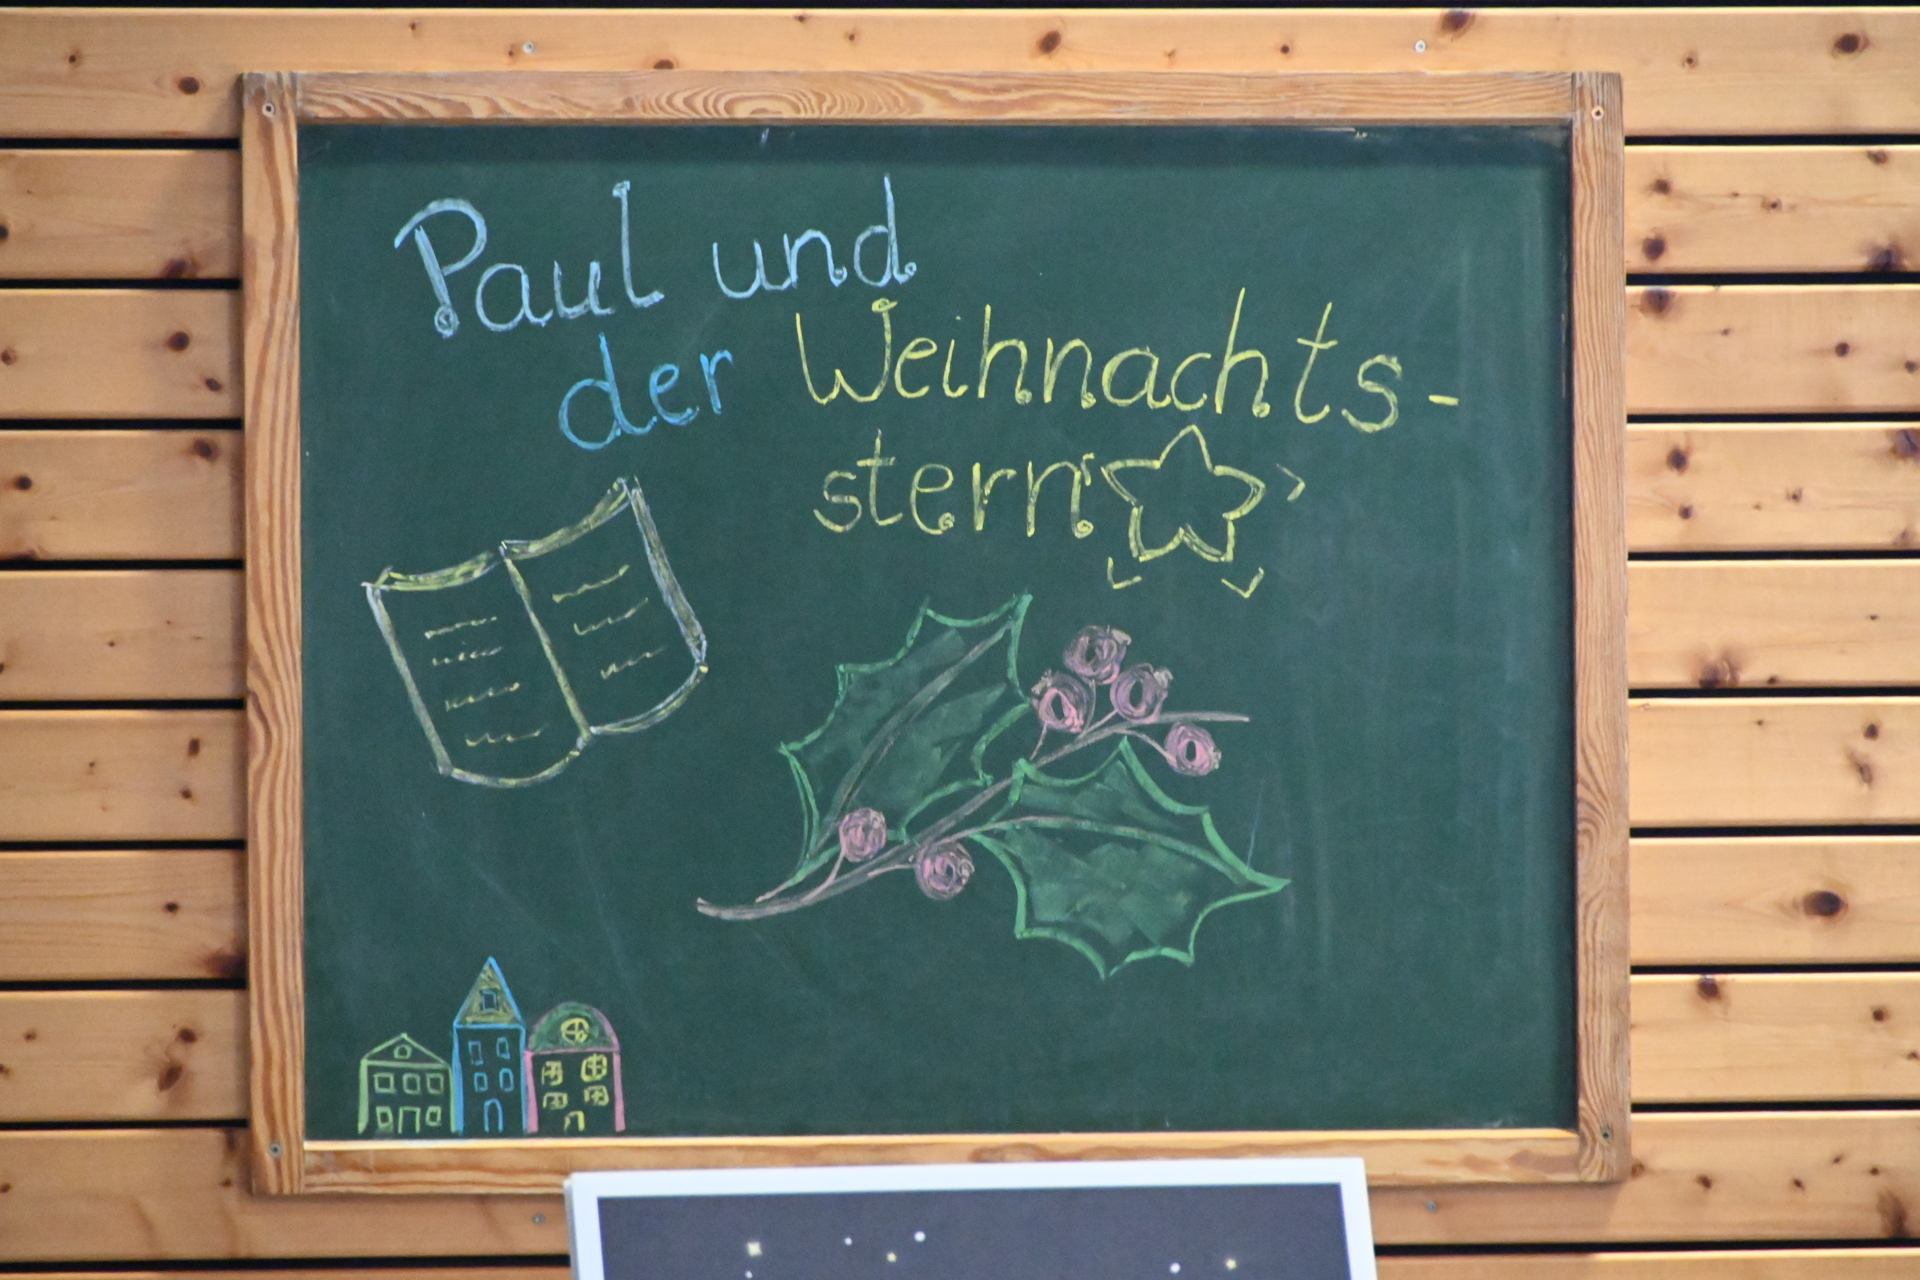 Paul und
der Weihnachts-
stern